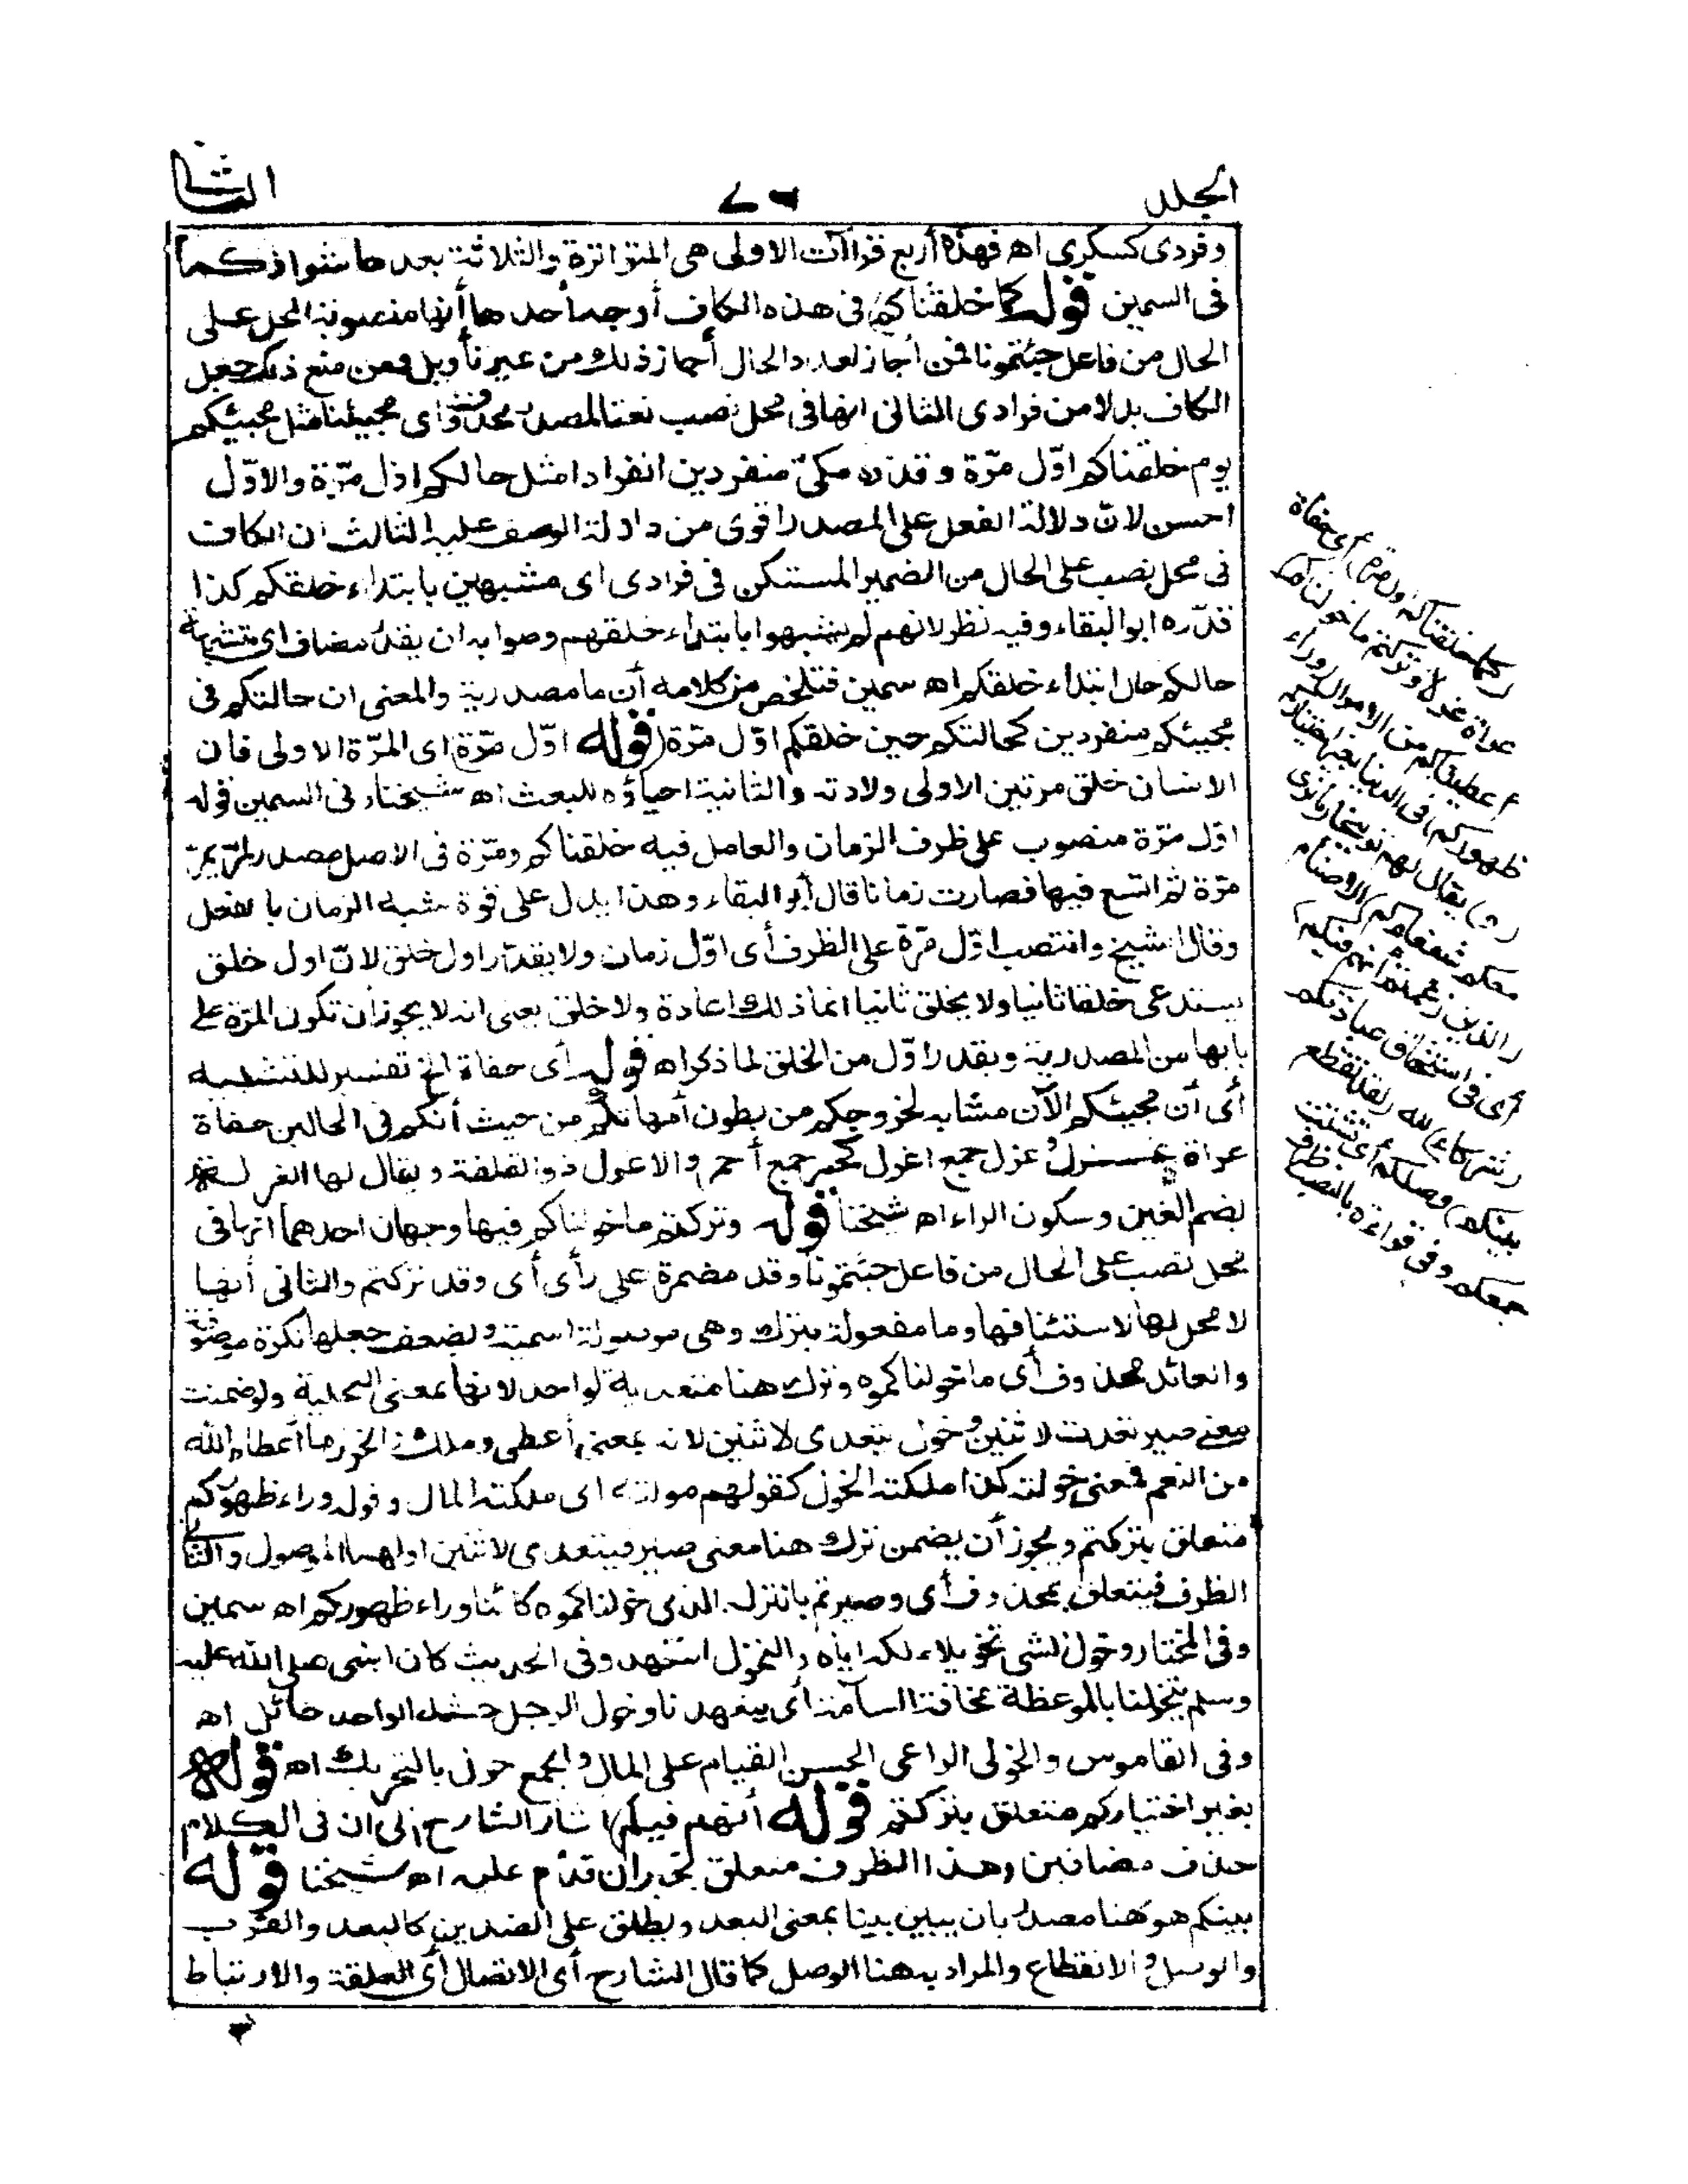 المجلد
٧٦
الثا
وفردى كسكرى اه فهذه أربع قراآت الاولى هى المتواترة والثلاثة بعدها شواذ كما
فى السمين قوله كما خلقناكم فى هذه الكاف أوجه أحدها أنها منصوبة المحل على
الحال من فاعل جئتمونا فمن أجاز تعدد الحال أجاز ذلك من غير تأويل ومن منع ذلك جعل
الكاف بدلا من فرادى الثانى انها فى محل نصب نعتا لمصدر محذوف أى مجيئنا مثل مجيئكم
يوم خلقناكم اوّل مرّة وقدره مكىّ منفردين انفرادا مثل حالكم اوّل مرّة والاوّل
احسن لانّ دلالة الفعل على المصدر اقوى من دلالة الوصف عليه الثالث ان الكاف
فى محل نصب على الحال من الضمير المستكن فى فرادى اى مشبهين بابتداء خلقكم كذا
قدّره ابو البقاء وفيه نظر لانهم لم يشبهوا بابتداء خلقهم وصوابه ان يقدّر مضاف اى مشبهة
حالكم حال ابتداء خلقكم اه سمين فتلخص من كلامه أن ما مصدرية والمعنى ان حالتكم فى
مجيئكم منفردين كحالتكم حين خلقكم اوّل مرّة (قوله اوّل مرّة) اى المرّة الاولى فان
الانسان خلق مرتين الاولى ولادته والثانية احياؤه للبعث اه شيخنا وفى السمين قوله
اوّل مرّة منصوب على ظرف الزمان والعامل فيه خلقناكم ومرّة فى الاصل مصدر لمرّ يمرّ
مرّة ثم اتسع فيها فصارت زمانا قال أبو البقاء وهذا يدل على قوة شبه الزمان بالفعل
وقال الشيخ وانتصب اوّل مرّة على الظرف أى اوّل زمان ولا يقدّر اول خلق لانّ اول خلق
يستدعى خلقا ثانيا ولا يخلق ثانيا انما ذلك اعادة ولا خلق يعنى انه لا يجوز أن تكون المرّة على
بابها من المصدرية ويقدر اوّل من الخلق لما ذكر اه قوله أى حفاة الخ تفسير للتشبيه
أى أن مجيئكم الآن مشابه لخروجكم من بطون أمهاتكم من حيث أنكم فى الحالين حفاة
عراة غرل جمع اغرل كحمر جمع أحمر والاغرل ذو القلفة ويقال لها الغرلة
بضم الغين وسكون الراء اه شيخنا قوله وتركتم ما خولناكم فيها وجهان احدهما انها فى
محل نصب على الحال من فاعل جئتمونا وقد مضمرة على رأى أى وقد تركتم والثانى أنها
لا محل لها لاستئنافها وما مفعولة بترك وهى موصولة اسمية ويضعف جعلها نكرة موصوفة
والعائد محذوف أى ما خولناكموه وترك هنا متعدية لواحد لانها بمعنى التخلية ولو ضمنت
معنى صير تعدت لاثنين وخول يتعدى لاثنين لانه بمعنى أعطى وملك والخول ما أعطاه الله
من النعم فمعنى خولته كذا ملكته الخول كقولهم مولته اى ملكته المال وقوله وراء ظهوركم
متعلق بتركتم ويجوز أن يضمن ترك هنا معنى صير فيتعدى لاثنين اولهما الموصول والثانى
الظرف فيتعلق بمحذوف أى وصيرتم بالترك الذى خولناكموه كائنا وراء ظهوركم اه سمين
وفى المختار وخوله الشىء تخويلا ملكه اياه والتخول التعهد وفى الحديث كان النبى صلى الله عليه
وسلم يتخولنا بالموعظة مخافة السآمة أى يتعهدنا وخول الرجل حشمه الواحد خائل اه
وفى القاموس والخولى الراعى الحسن القيام على المال والجمع خول بالتحريك اه قوله
بغير اختياركم متعلق بتركتم قوله أنهم فيكم اشار الشارح الى ان فى الكلام
حذف مضافين وهذا الظرف متعلق بخبر ان قدم عليه اه شيخنا قوله
بينكم هو هنا مصدر بان يبين بينا بمعنى البعد ويطلق على الضدين كالبعد والقرب
والوصل والانقطاع والمراد به هنا الوصل كما قال الشارح أى الاتصال أى العلقة والارتباط
(كما خلقناكم اول مرة) أى حفاة
عراة غرلا (وتركتم ما خولناكم)
أعطيناكم من الاموال (وراء
ظهوركم) فى الدنيا بغير اختياركم
(و) يقال لهم توبيخا (ما نرى
معكم شفعاءكم) الاصنام
(الذين زعمتم أنهم فيكم)
أى فى استحقاق عبادتكم
(شركاء) لله (لقد تقطع
بينكم) وصلكم أى تشتت
جمعكم وفى قراءة بالنصب ظرف